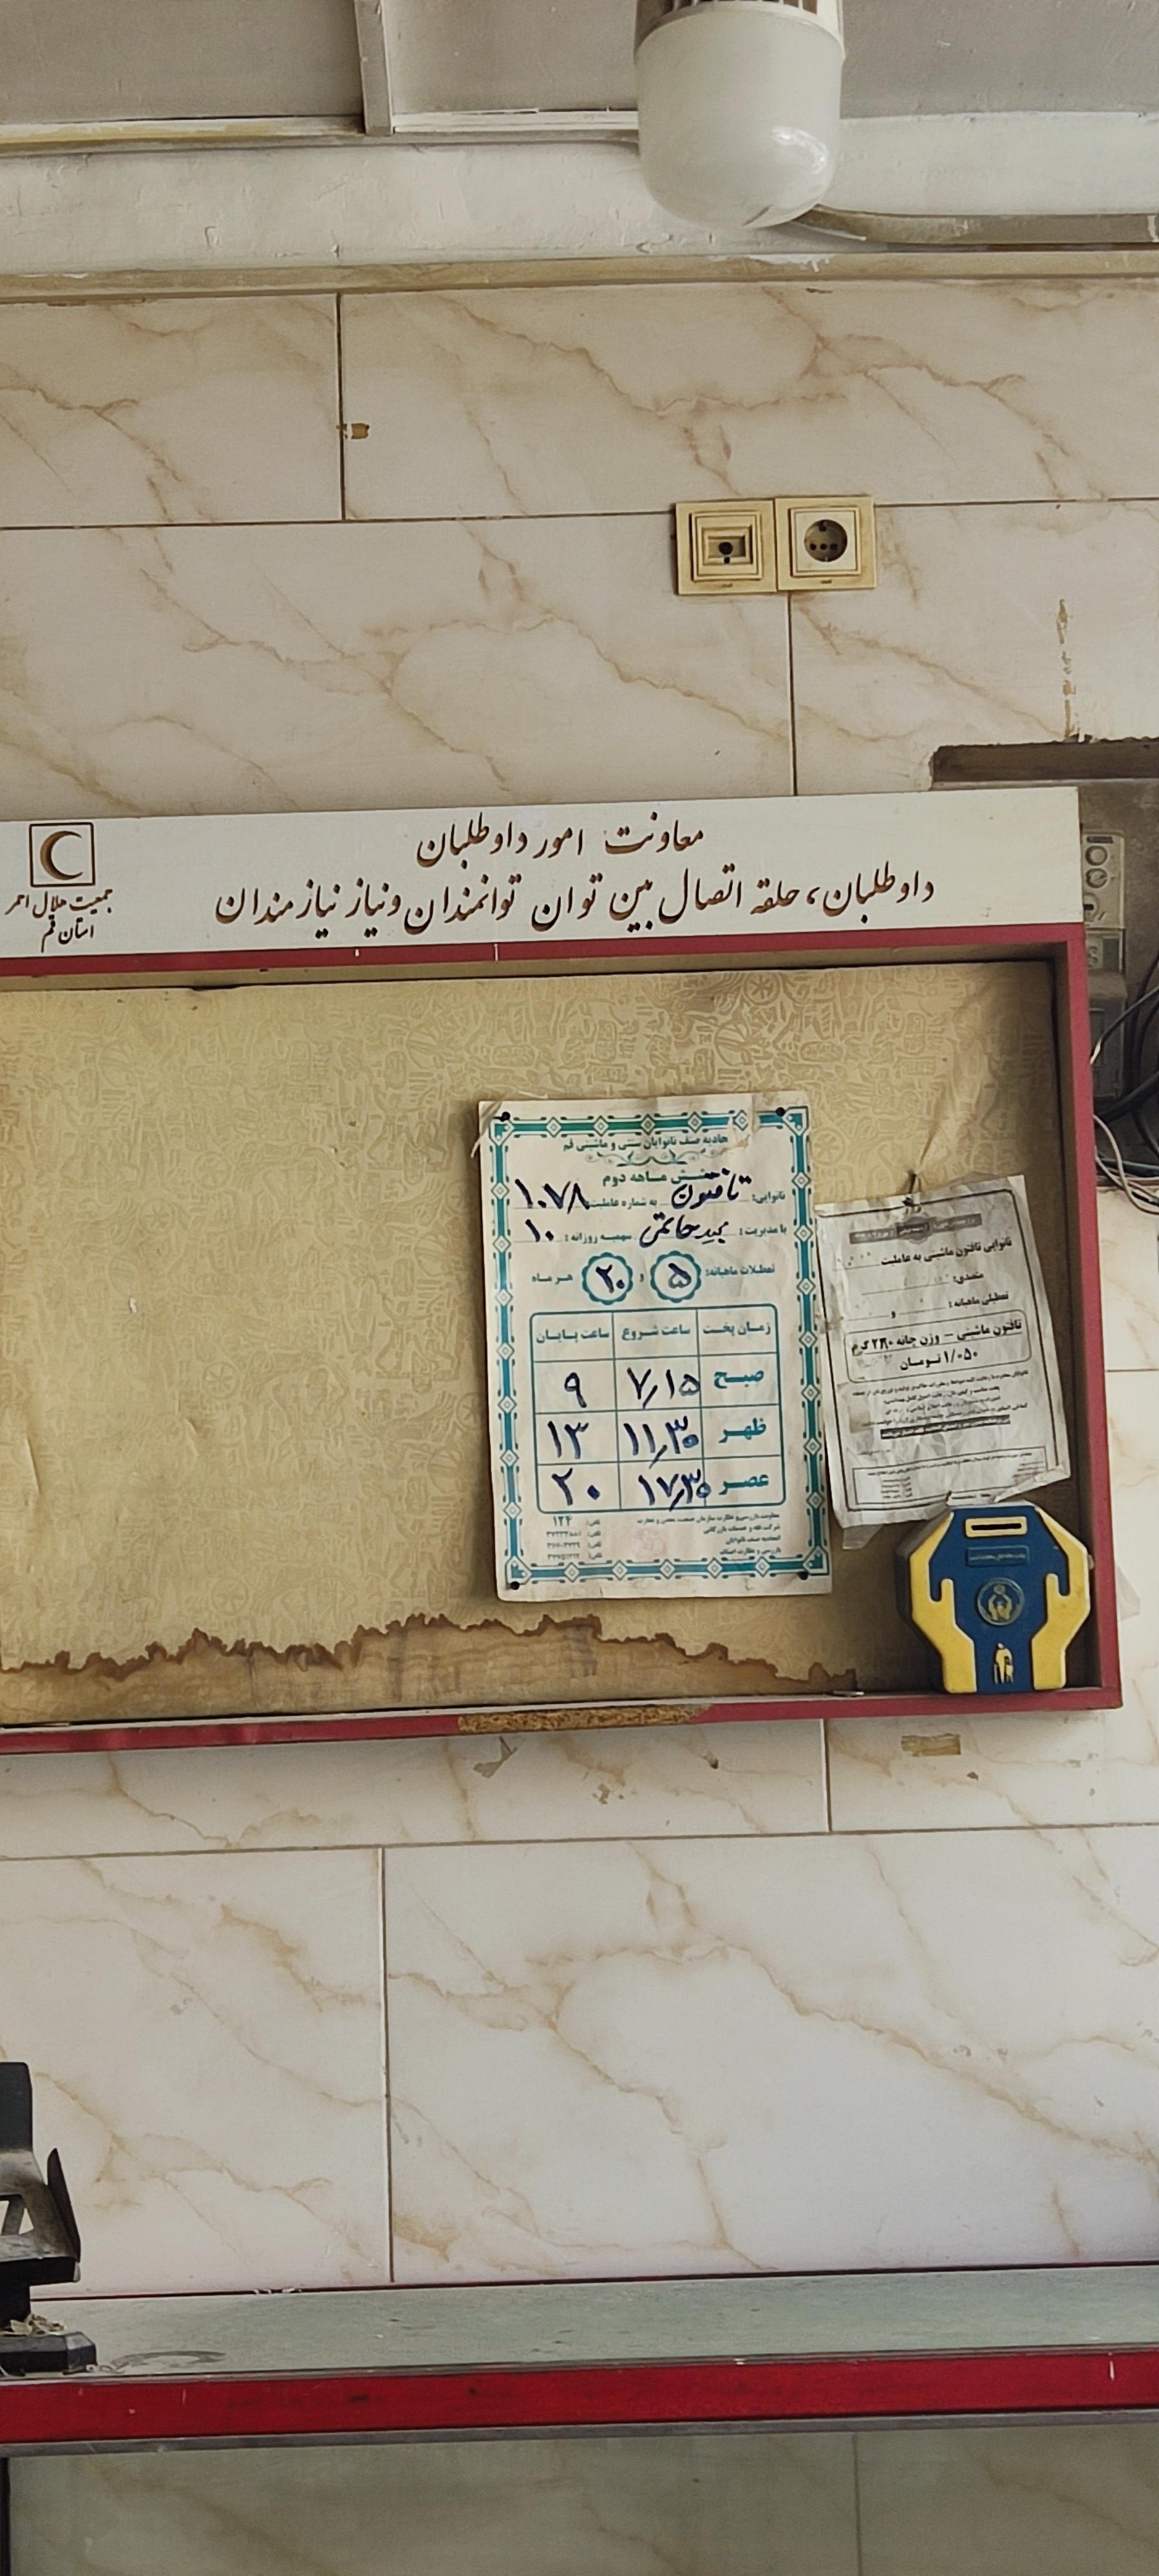 معاونت امور داوطلبان
داوطلبان، حلقه اتصال بین توان توانمندان ونیاز نیازمندان
جمعیت هلال احمر
استان قم
اتحادیه صنف نانوایان سنتی و ماشینی قم
شش ماهه دوم
نانوایی: تافتون به شماره عاملیت: ۱۰۷۸
با مدیریت: حاتمی سهمیه روزانه: ۱۰
تعطیلات ماهیانه: ۵ و ۲۰ هر ماه
زمان پخت ساعت شروع ساعت پایان
صبح ۷٫۱۵ ۹
ظهر ۱۱٫۳۰ ۱۳
عصر ۱۷٫۳۰ ۲۰
معاونت بازرسی و نظارت سازمان صنعت معدن و تجارت تلفن: ۱۲۴
شرکت غله و خدمات بازرگانی تلفن:
اتحادیه صنف نانوایان تلفن:
بازرسی و نظارت اصناف تلفن:
نانوایی تافتون ماشینی به عاملیت
متصدی:
تعطیلی ماهیانه: و
تافتون ماشینی - وزن چانه گرم
۱/۰۵۰ تومان